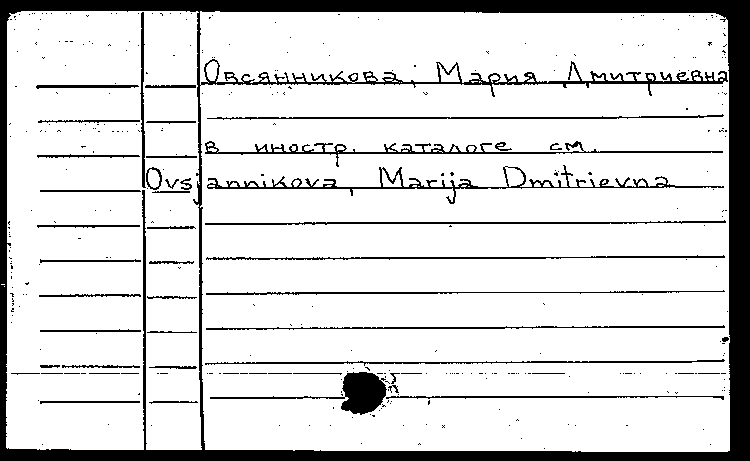 Овсянникова, Мария Дмитриевна
в иностр. каталоге см.
Ovsjannikova, Marija Dmitrievna